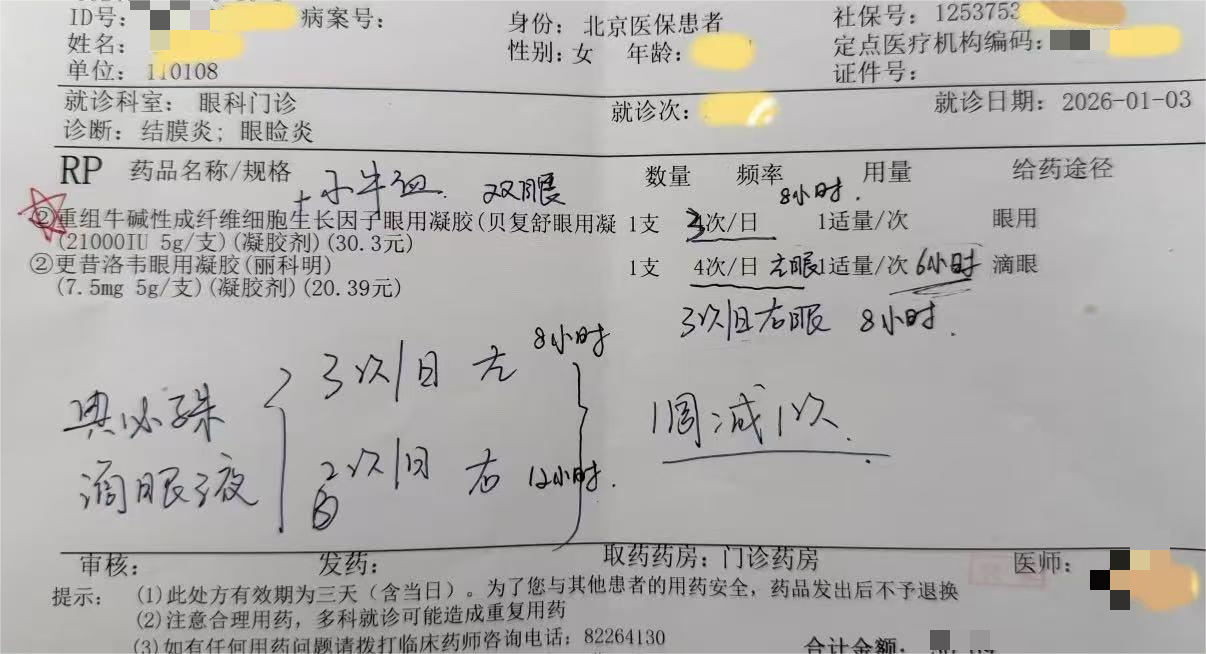 ID号： 病案号： 身份：北京医保患者 社保号：1253753
姓名： 性别：女 年龄： 定点医疗机构编码：
单位：110108 证件号：
就诊科室：眼科门诊 就诊次： 就诊日期：2026-01-03
诊断：结膜炎；眼睑炎
RP 药品名称/规格 数量 频率 用量 给药途径
+小牛血. 双眼 8小时.
②重组牛碱性成纤维细胞生长因子眼用凝胶(贝复舒眼用凝 1支 3次/日 1适量/次 眼用
(21000IU 5g/支)(凝胶剂)(30.3元)
②更昔洛韦眼用凝胶(丽科明) 1支 4次/日 左眼 1适量/次 6小时 滴眼
(7.5mg 5g/支)(凝胶剂)(20.39元)
3次/日右眼 8小时.
3次/日 左 8小时
典必殊 1周减1次.
滴眼液 2次/日 右 12小时.
审核： 发药： 取药药房：门诊药房 医师：
提示： (1)此处方有效期为三天（含当日）。为了您与其他患者的用药安全，药品发出后不予退换
(2)注意合理用药，多科就诊可能造成重复用药
(3)如有任何用药问题请拨打临床药师咨询电话：82264130
合计金额：